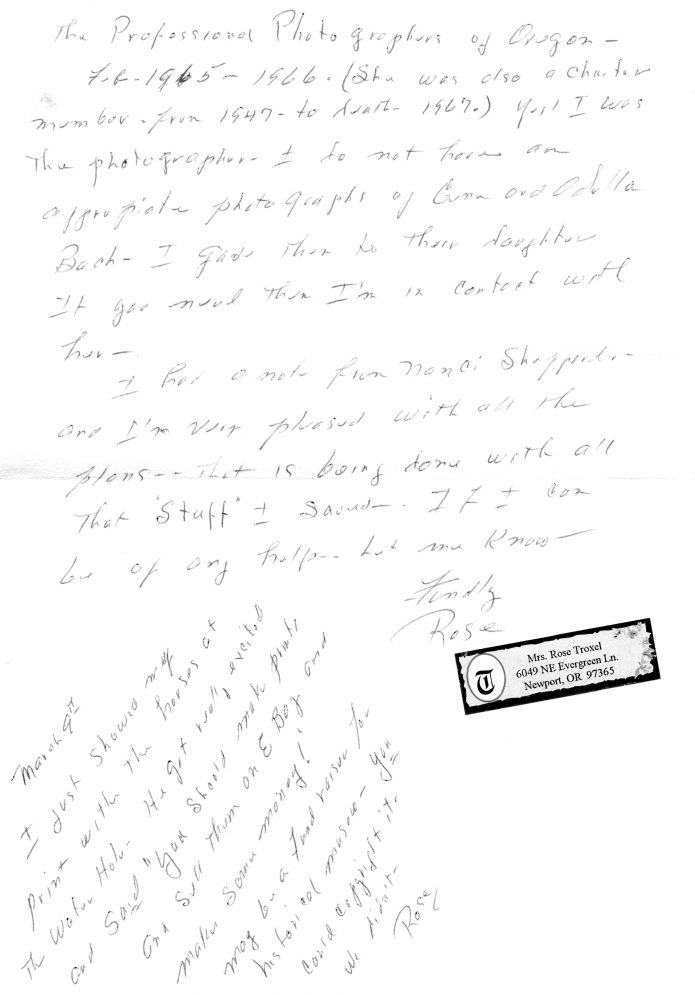 The Professional Photographers of Oregon –
Feb. 1965 – 1966. (She was also a charter
member – from 1947 – to death – 1967.) Yes! I was
the photographer – I do not have an
appropiate photographs of and Odella
Bach – I gave them to their daughter
If you need them I'm in contact with
her –
I had a note from Nanci Sheppard –
and I'm very pleased with all the
plans -- that is being done with all
that "stuff" I saved –. If I can
be of any help -- let me know –
Fondly
Rose
Mrs. Rose Troxel
6049 NE Evergreen Ln.
Newport, OR 97365
T
March 9th
I just showed my
print with the horses at
the Water Hole – He got real excited
and said "You should make prints
and sell them on E Bay and
make some money!"
may be a fund raiser for
historical museum – you
could copyright it.
we didn't –
Rose